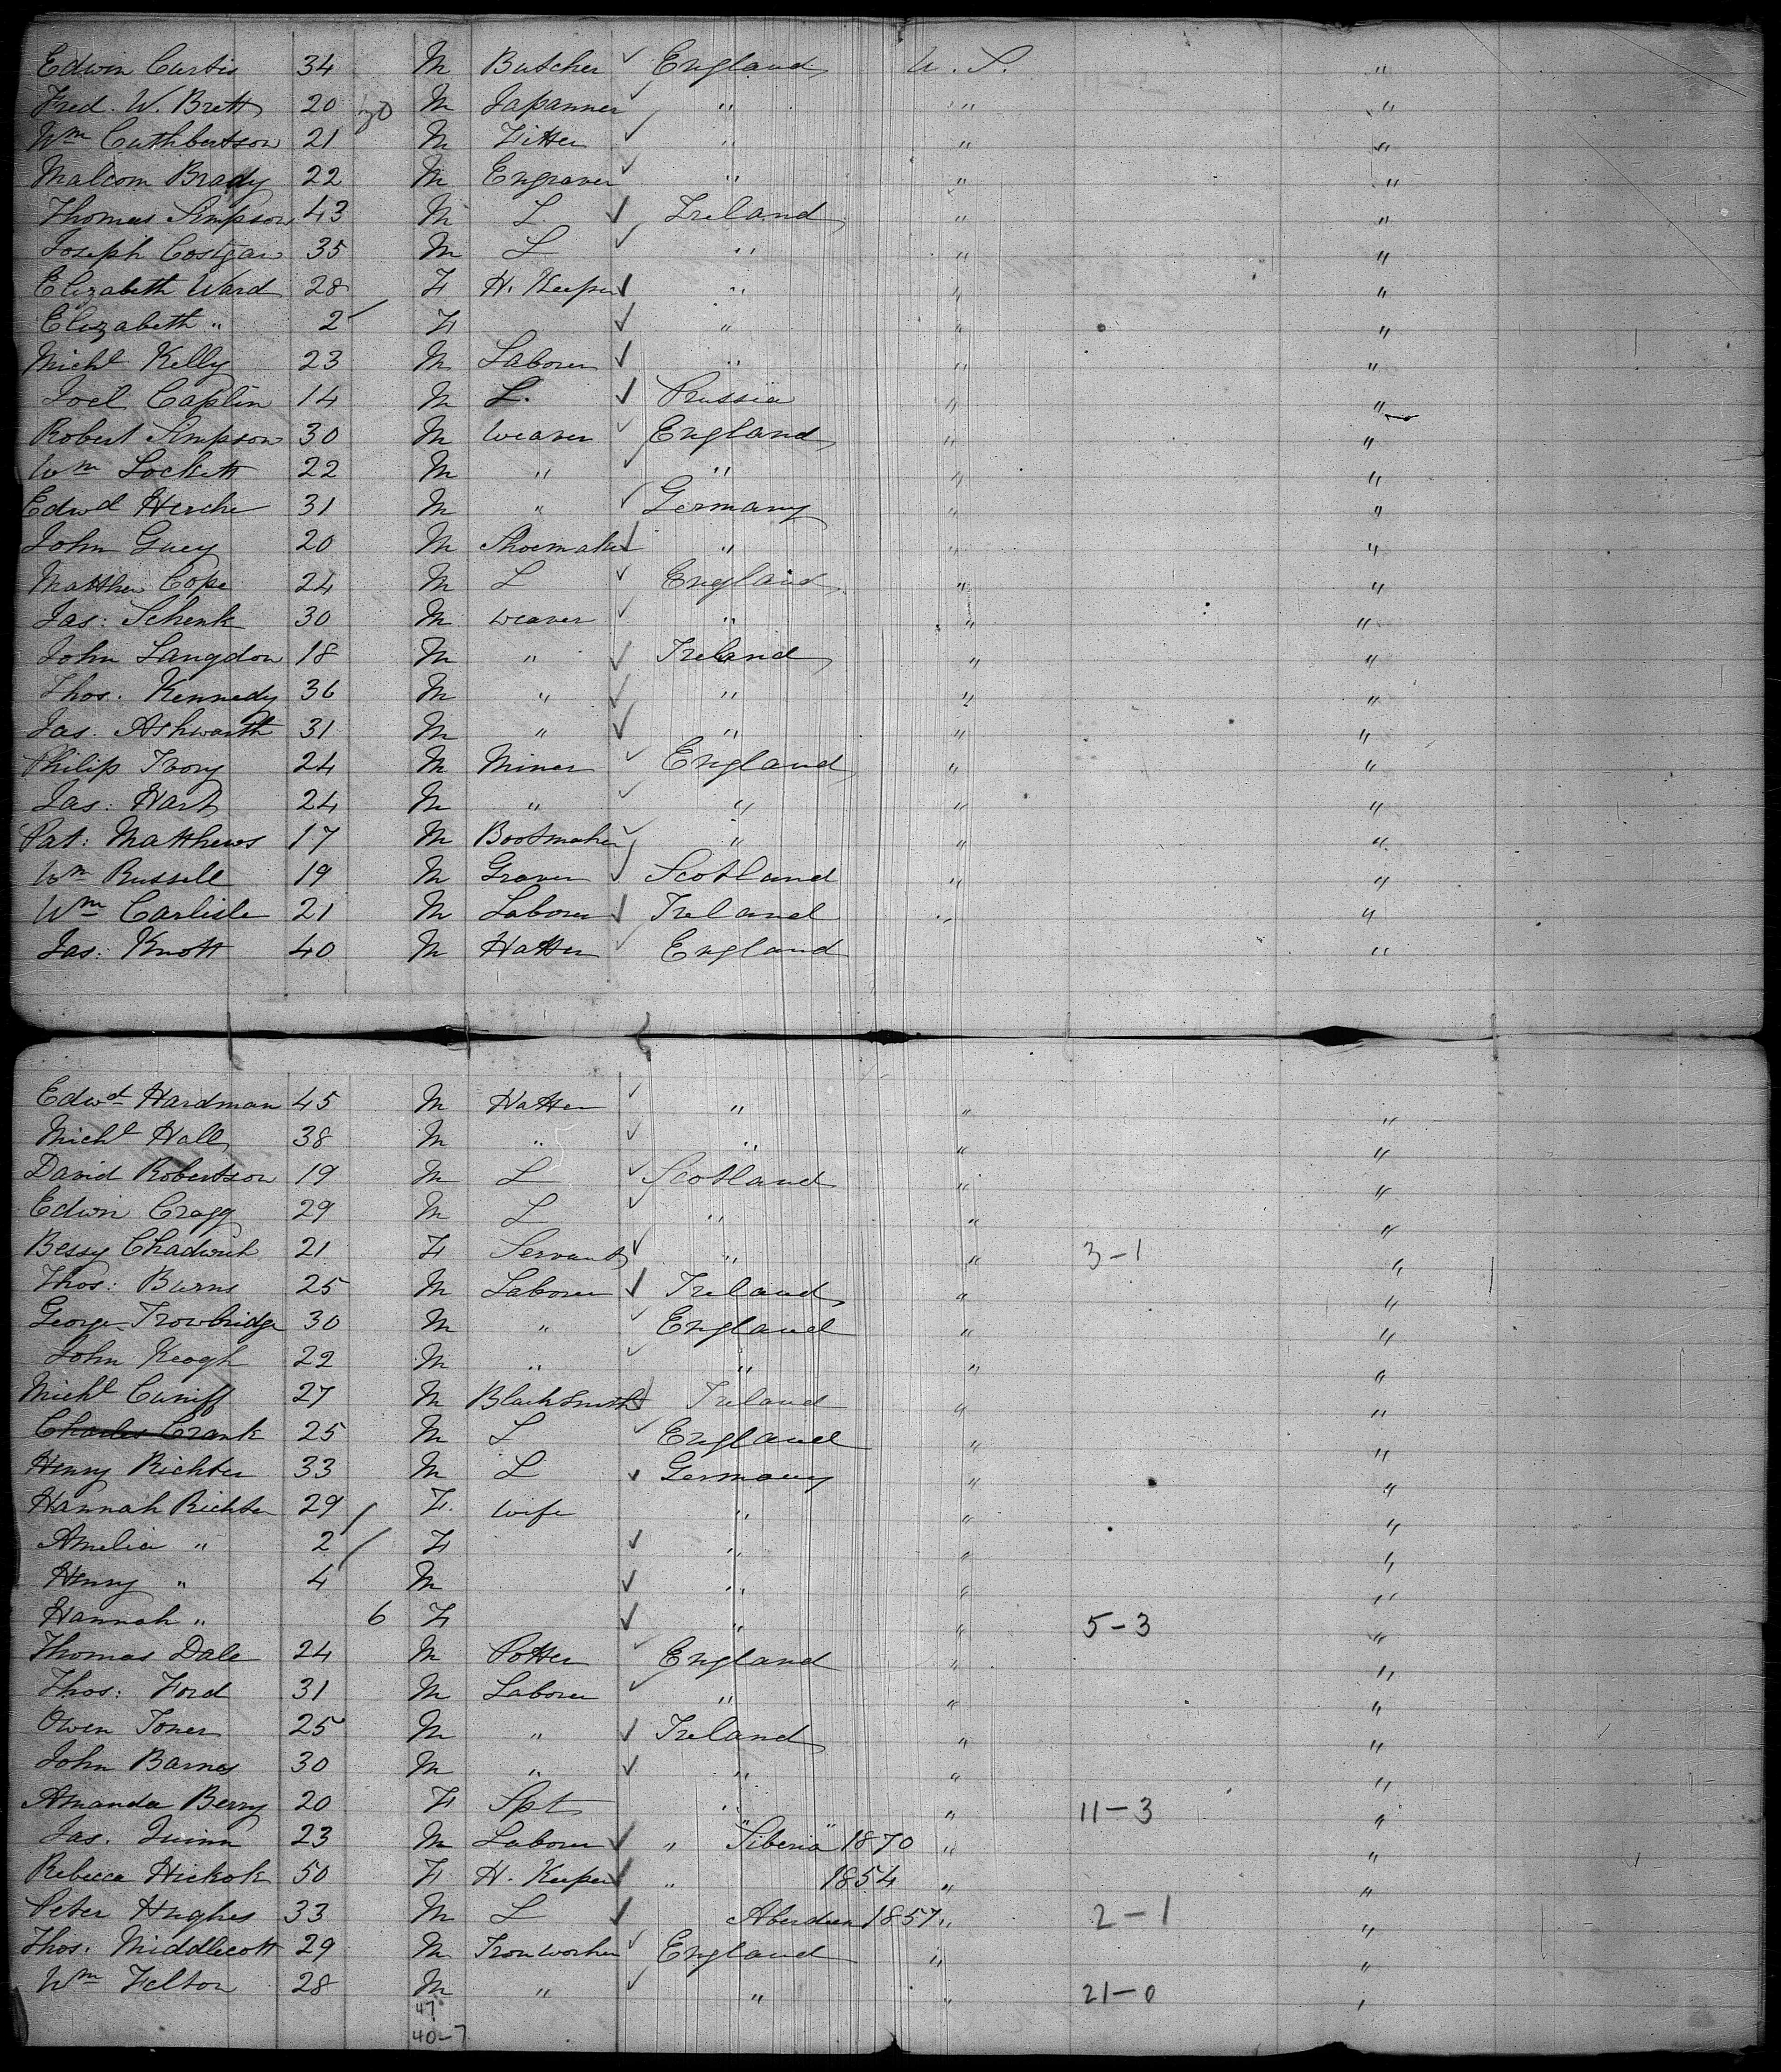 Edwin Curtis 34 M Butcher ✓ England U. S. "
Fred. W. Brett 20 M Japanner ✓ " " "
Wm Cuthbertson 21 M Fitter ✓ " " "
Malcom Brady 22 M Engraver ✓ " " "
Thomas Simpson 43 M L ✓ Ireland " "
Joseph Costgan 35 M L ✓ " " "
Elizabeth Ward 28 F H. Keeper ✓ " " "
Elizabeth " 2 F ✓ " " "
Michl Kelly 23 M Laborer ✓ " " "
Joel Caplin 14 M L. ✓ Prussia " "
Robert Simpson 30 M Weaver ✓ England " "
Wm Lockett 22 M " ✓ " " "
Edwd Herche 31 M " ✓ Germany " "
John Guey 20 M Shoemaker ✓ " " "
Matthew Cope 24 M L ✓ England " "
Jas: Schenk 30 M weaver ✓ " " "
John Langdon 18 M " ✓ Ireland " "
Thos. Kennedy 36 M " ✓ " " "
Jas. Ashworth 31 M " ✓ " " "
Philip Ivory 24 M Miner ✓ England " "
Jas: Hart 24 M " ✓ " " "
Pat: Matthews 17 M Bootmaker ✓ " " "
Wm Russell 19 M Graver ✓ Scotland " "
Wm Carlisle 21 M Laborer ✓ Ireland " "
Jas: Knott 40 M Hatter ✓ England "
Edwd Hardman 45 M Hatter ✓ " " "
Michl Hall 38 M " ✓ " " "
David Robertson 19 M L ✓ Scotland " "
Edwin Cragg 29 M L ✓ " " "
Bessy Chadwick 21 F Servant ✓ " " 3-1 "
Thos: Burns 25 M Laborer ✓ Ireland " "
George Trowbridge 30 M " ✓ England " "
John Keogh 22 M " ✓ " " "
Michl Cuniff 27 M Blacksmith ✓ Ireland " "
Charles Crank 25 M L ✓ England " "
Henry Richter 33 M L ✓ Germany " "
Hannah Richter 29 F. wife " " "
Amelia " 2 F ✓ " " "
Henry " 4 M ✓ " " "
Hannah " 6 F ✓ " " 5-3 "
Thomas Dale 24 M Potter ✓ England " "
Thos: Ford 31 M Laborer ✓ " " "
Owen Toner 25 M " ✓ Ireland " "
John Barnes 30 M " ✓ " " "
Amanda Berry 20 F Spt " " 11-3 "
Jas. Quinn 23 M Laborer ✓ " "Siberia" 1870 " "
Rebecca Hickok 50 F H. Keeper ✓ " 1854 " "
Peter Hughes 33 M L ✓ Aberdeen 1857 " 2-1 "
Thos. Middlecott 29 M Ironworker ✓ England " "
Wm Felton 28 M " ✓ " " 21-0 "
47
40-7